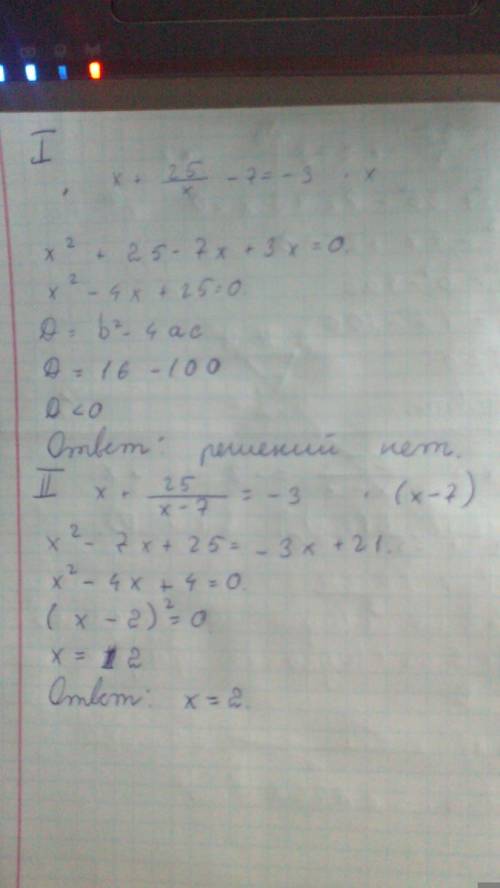 I
x + 25/x - 7 = -3 · x
x² + 25 - 7x + 3x = 0.
x² - 4x + 25 = 0.
D = b² - 4ac
D = 16 - 100
D < 0
Ответ: решений нет.
II x + 25/(x-7) = -3 · (x-7)
x² - 7x + 25 = -3x + 21.
x² - 4x + 4 = 0.
(x - 2)² = 0
x = 2
Ответ: x = 2.